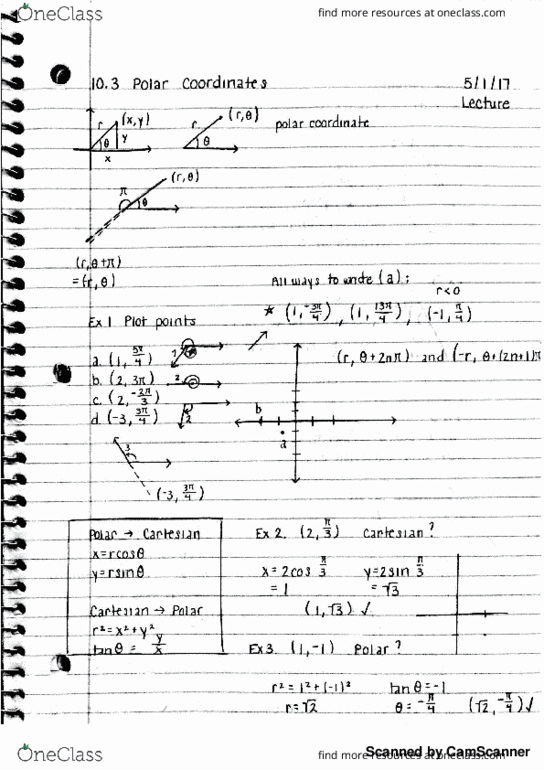 OneClass
find more resources at oneclass.com
10.3 Polar Coordinates 5/1/17
Lecture
r (x,y) y θ x
r (r,θ) θ polar coordinate
π (r,θ) θ
(r,θ+π)
=(-r,θ)
All ways to write (a):
r<0
* (1,-3π/4), (1,13π/4), (-1,π/4)
Ex 1 Plot points
(r,θ+2nπ) and (-r,θ+(2n+1)π
a. (1,5π/4) 1
b. (2,3π) 2
c. (2,-2π/3) 2
d. (-3,3π/4)
b
a
3
(-3,3π/4)
Polar → Cartesian
x=rcosθ
y=rsinθ
Cartesian → Polar
r²=x²+y²
tanθ = y/x
Ex 2. (2,π/3) Cartesian?
x=2cos π/3 y=2sin π/3
=1 =√3
(1,√3) ✓
Ex 3. (1,-1) Polar?
r²=1²+(-1)² tanθ=-1
r=√2 θ=-π/4 (√2,-π/4)✓
OneClass
find more resources at oneclass.com
Scanned by CamScanner